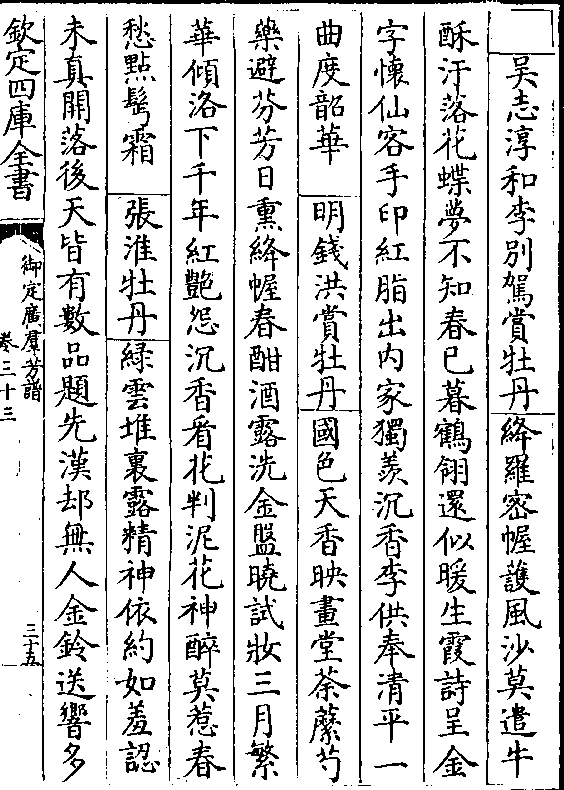 吳志淳和李別駕賞牡丹絳羅密幄護風沙莫遣牛
酥汙落花蝶夢不知春已暮鶴翎還似暖生霞詩呈金
字懷仙客手印紅脂出内家獨羨沉香李供奉清平一
曲度韶華 明錢洪賞牡丹國色天香映畫堂荼蘼芍
藥避芬芳日熏絳幄春酣酒露洗金盤曉試妝三月繁
華傾洛下千年紅艷怨沉香看花判泥花神醉莫惹春
愁點鬂霜 張淮牡丹緑雲堆裏露精神依約如羞認
未真開落後天皆有數品題先漢却無人金鈴送響多
欽定四庫全書
御定廣羣芳譜
卷三十三
三十五